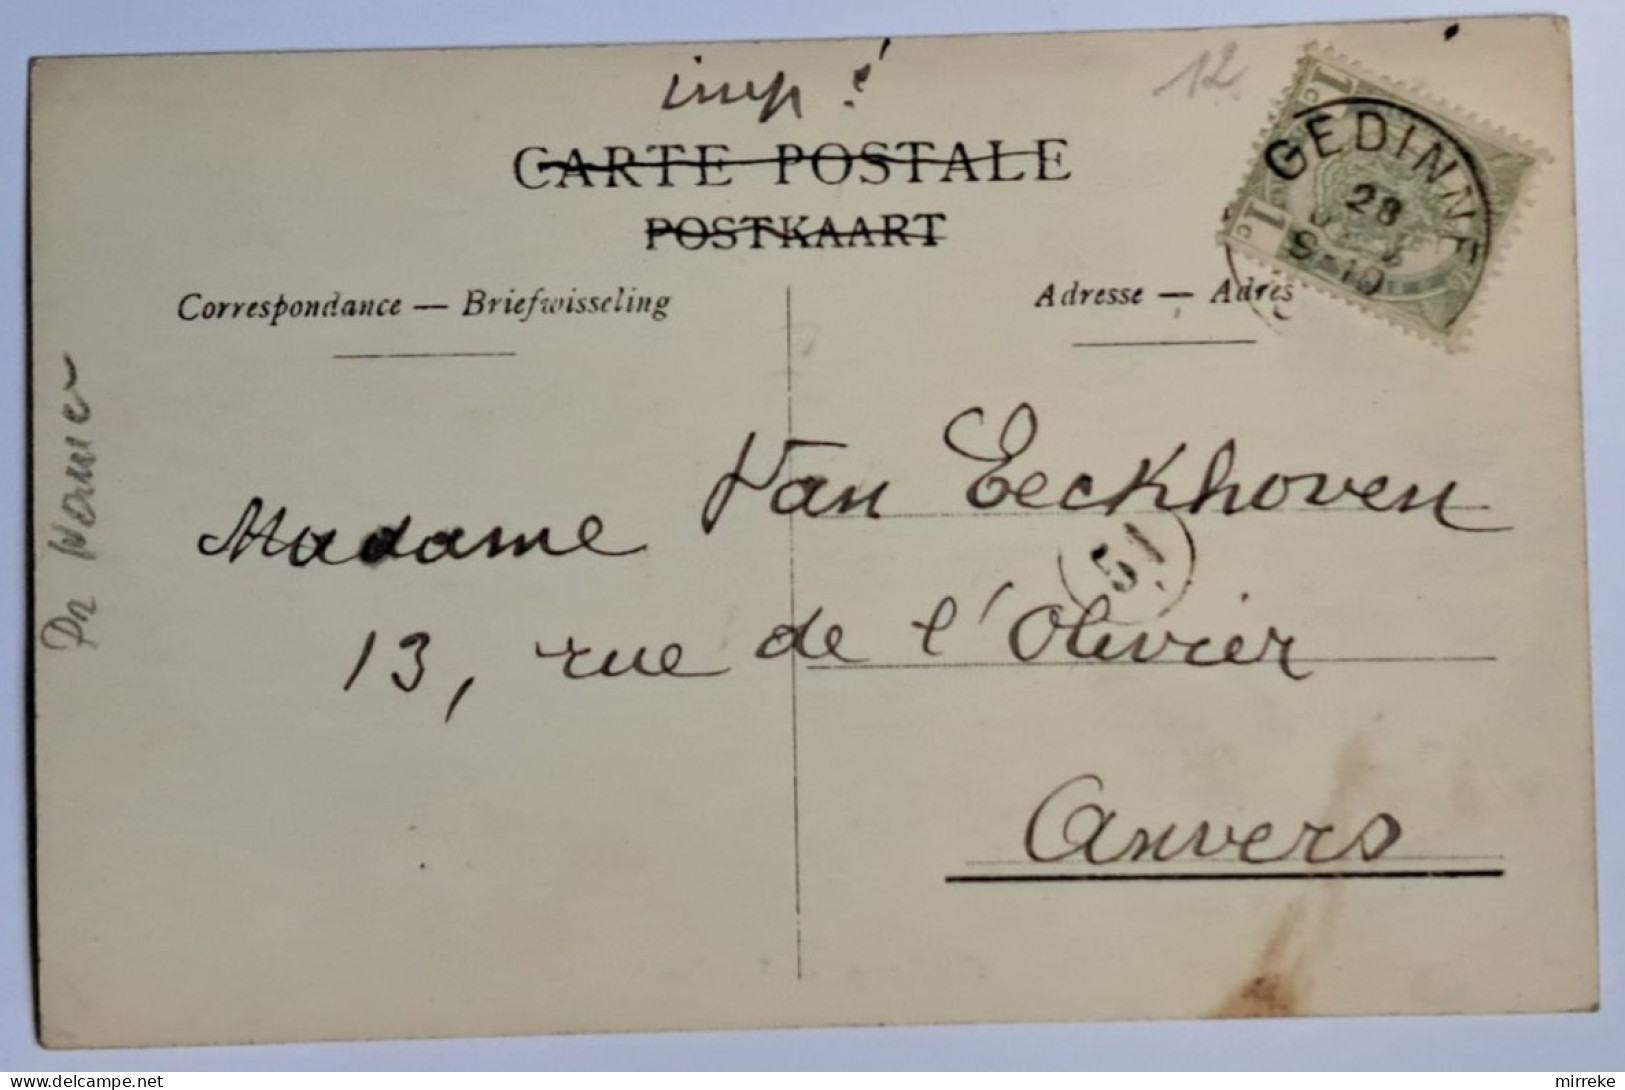 imp!
12
CARTE POSTALE
POSTKAART
Correspondance — Briefwisseling
Adresse — Adres
1 c
1 c
GEDINNE
28
9-10
Madame Van Eeckhoven
51
13, rue de l'Olivier
Anvers
delcampe.net
mirreke